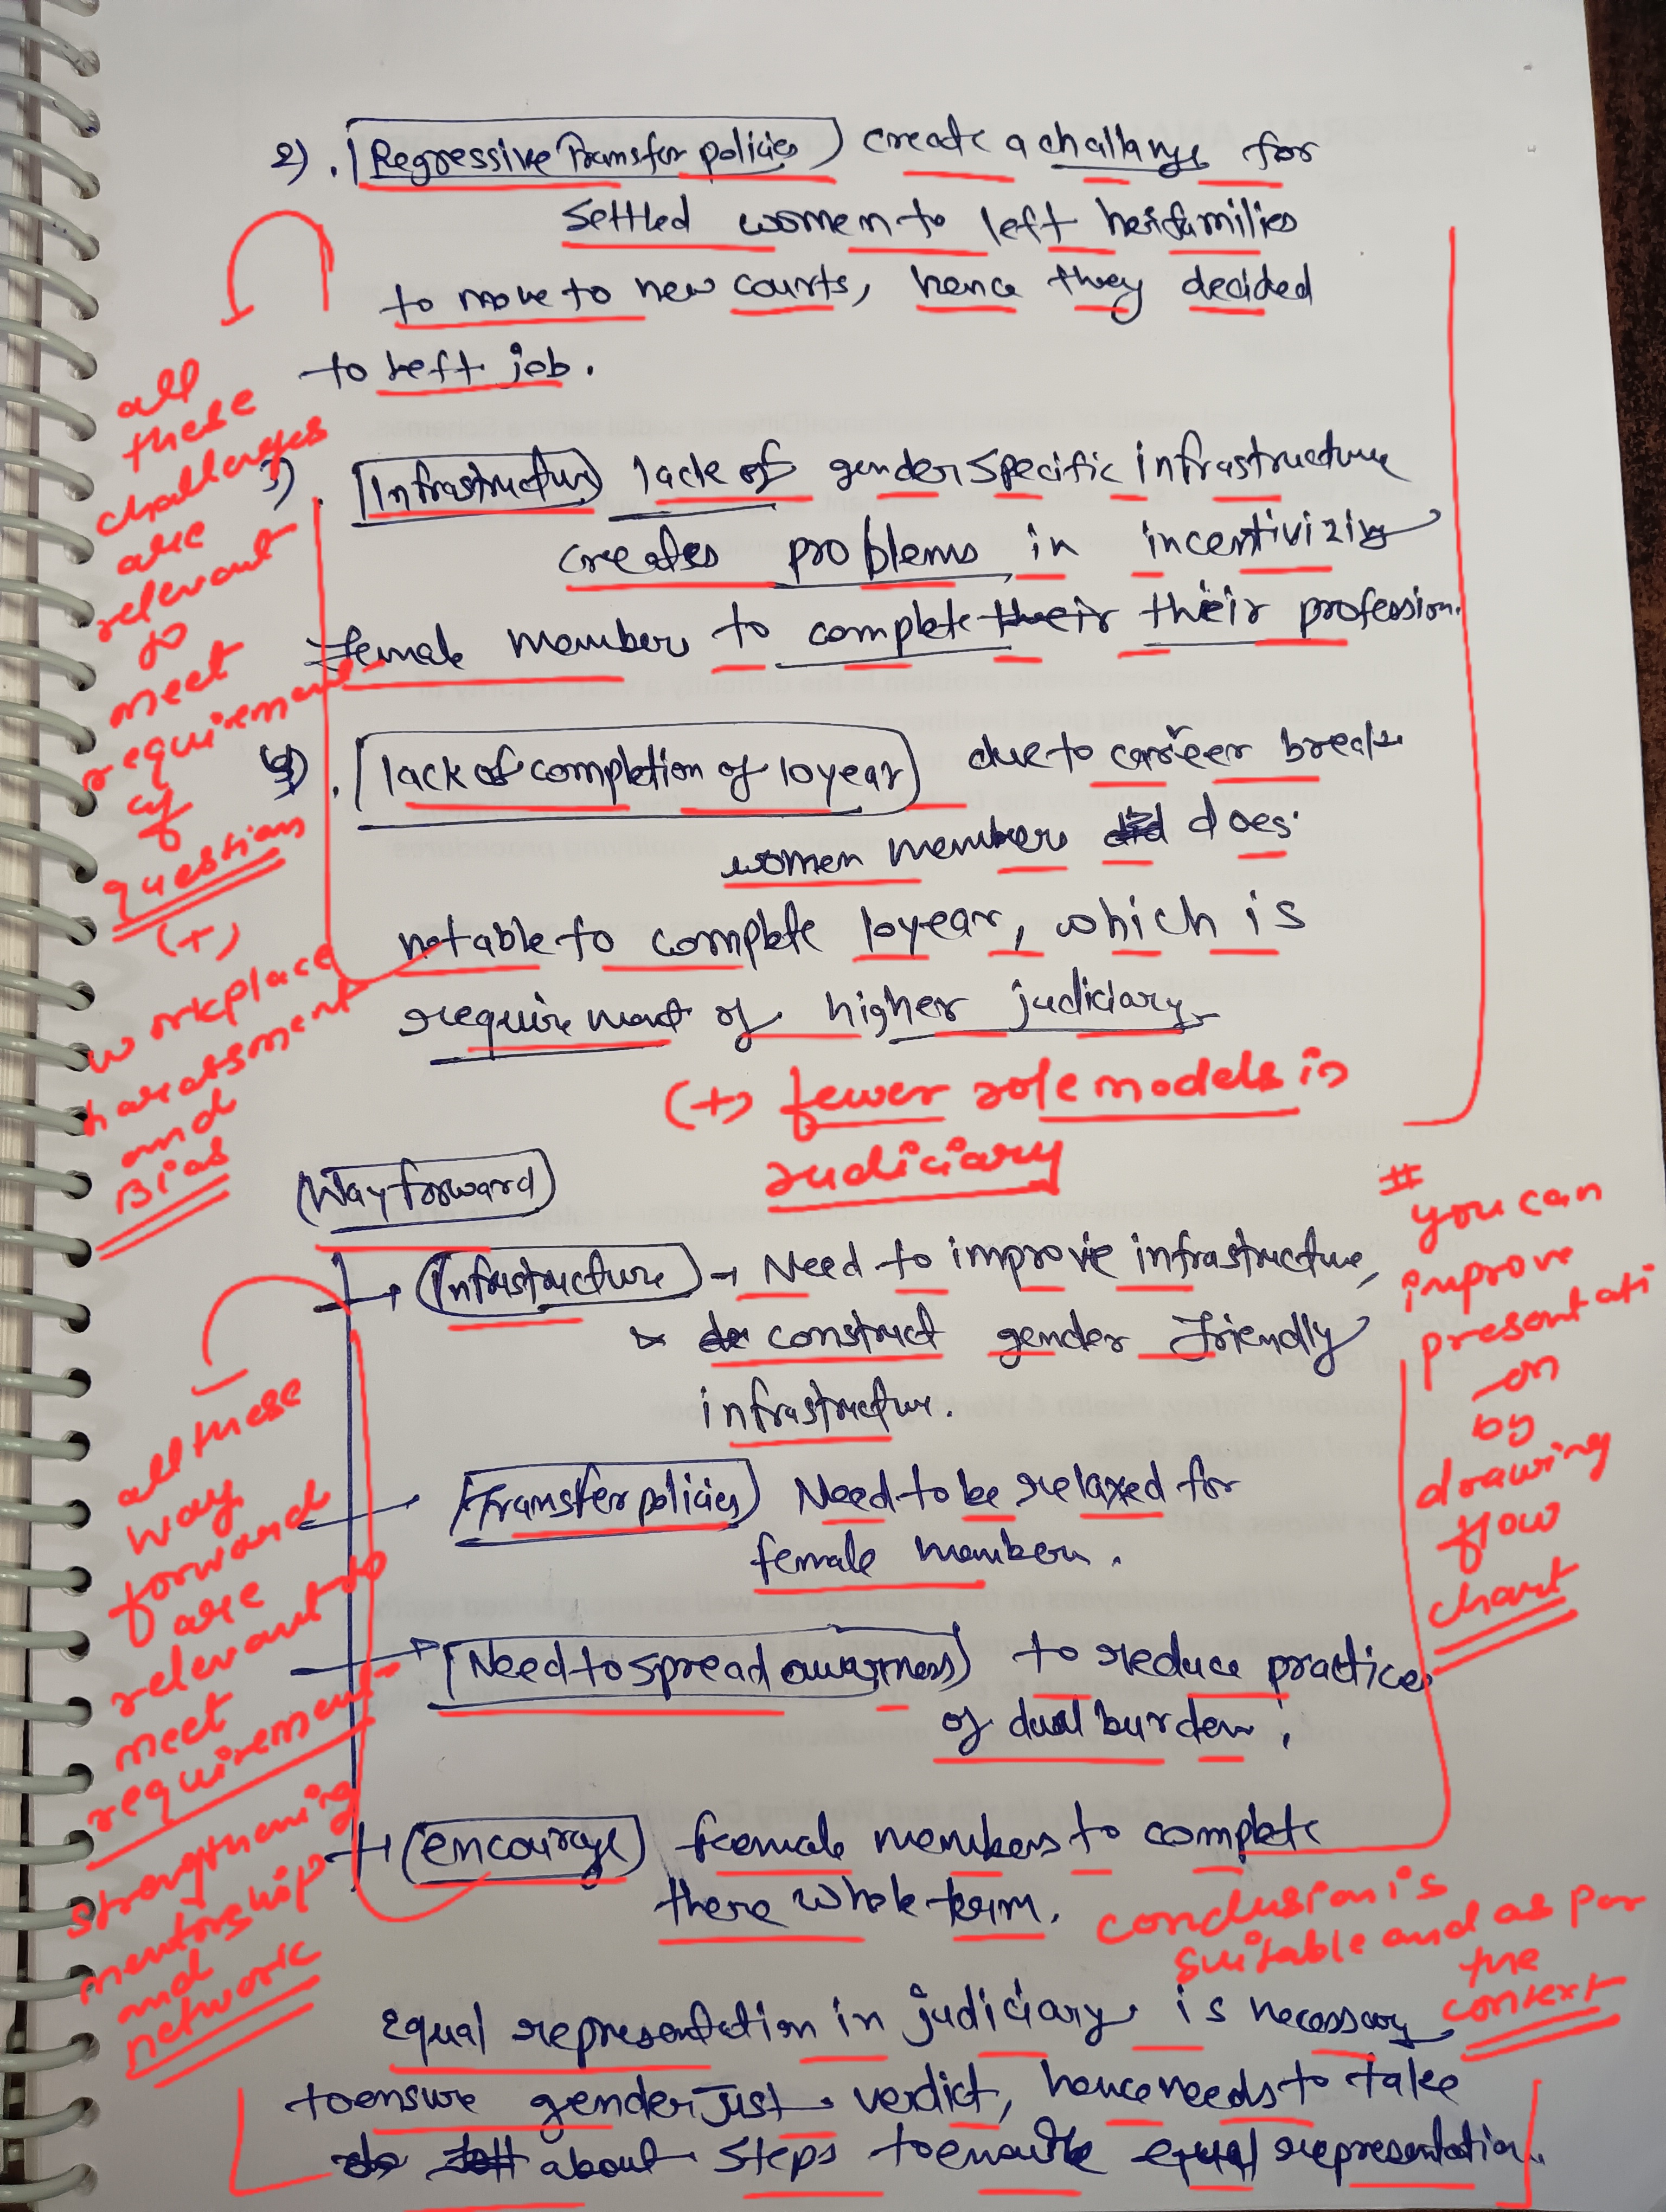 2). Regressive Transfer policies create a challange for
settled women to left her families
to move to new courts, hence they decided
to left job.
3). Infrastructure lack of gender specific infrastructure
creates problems in incentivizing
female members to complete their their profession.
4). lack of completion of 10 year due to career break
women members did does
not able to complete 10 year, which is
requirement of higher judiciary
(+) fewer role models in
judiciary
all
these
challenges
are
relevant
to
meet
requirement
of
question
(+)
workplace
harassment
and
Bias
Way forward
→ Infrastructure → Need to improve infrastructure,
construct gender friendly
infrastructure.
Transfer policies Need to be relaxed for
female members.
→ Need to spread awareness to reduce practice
of dual burden;
encourage female members to complete
there whole term.
all these
way
forward
are
relevant to
meet
requirement
strengthening
mentorship
and
network
#
you can
improve
presentati
-on
by
drawing
flow
chart
conclusion is
suitable and as per
the
context
Equal representation in judiciary is necessary
to ensure gender Just verdict, hence needs to take
about steps to equal representation.